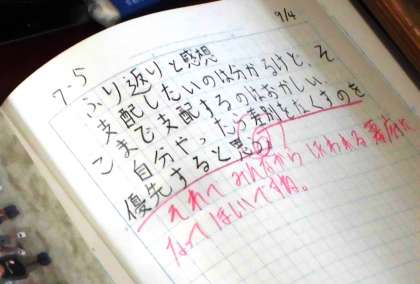 9/4
7.5
ふり返りと感想
支配したいのは分かるけど、そ
こまで支配するのはおかしい。
自分やったら差別をなくすのを
優先すると思う。
それで みんなから したわれる 幕府に
なってほしいですね。